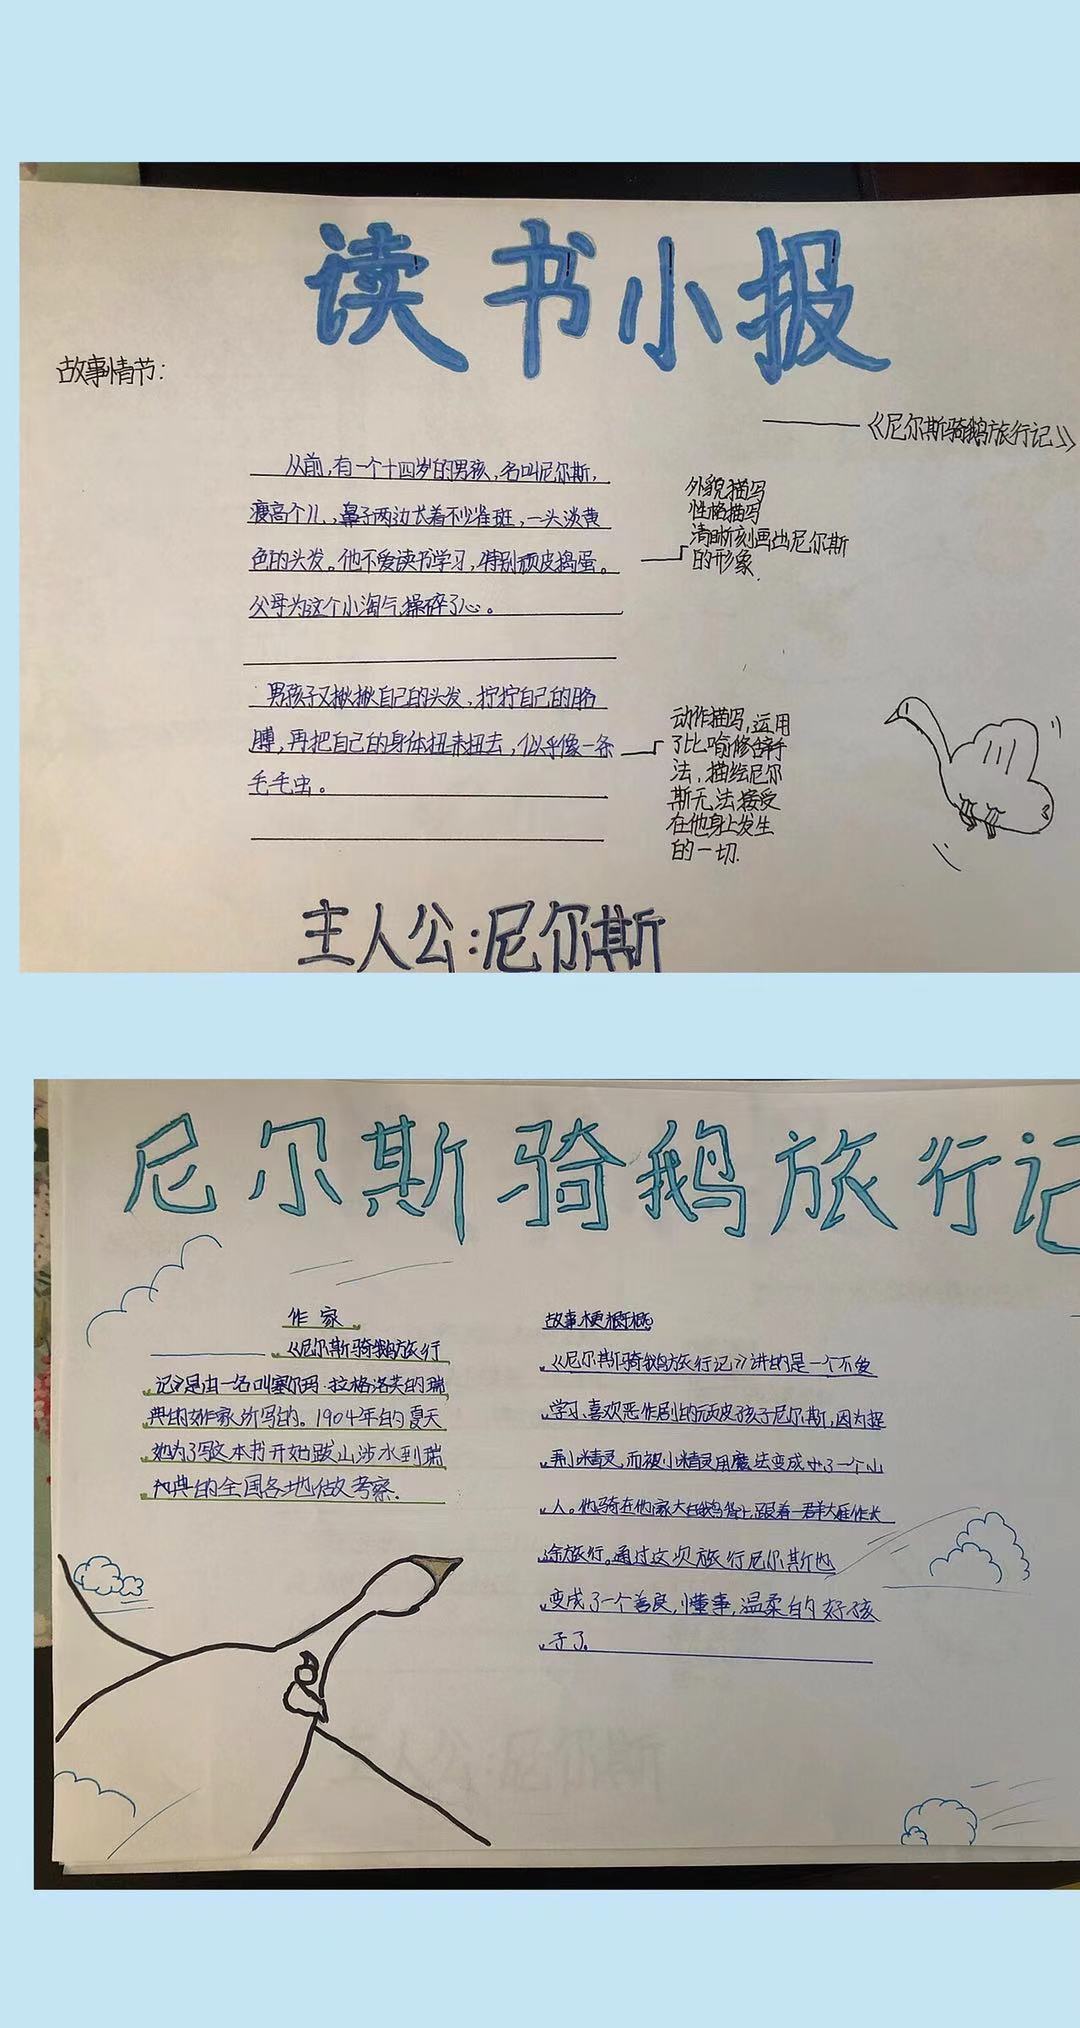 读书小报
故事情节：
——《尼尔斯骑鹅旅行记》
从前，有一个十四岁的男孩，名叫尼尔斯，
瘦高个儿，鼻子两边长着不少雀斑，一头淡黄
色的头发。他不爱读书学习，特别顽皮捣蛋。
父母为这个小淘气操碎了心。
外貌描写
性格描写
清晰刻画出尼尔斯
的形象.
男孩子又揪揪自己的头发，拧拧自己的胳
膊，再把自己的身体扭来扭去，似乎像一条
毛毛虫。
动作描写，运用
了比喻修辞手
法，描绘尼尔
斯无法接受
在他身上发生
的一切.
主人公：尼尔斯
尼尔斯骑鹅旅行记
作家
《尼尔斯骑鹅旅行
记》是由一名叫塞尔玛·拉格洛芙的瑞
典的女作家所写的。1904年的夏天
她为了写这本书开始跋山涉水到瑞
典的全国各地做考察.
故事梗概
《尼尔斯骑鹅旅行记》讲的是一个不爱
学习、喜欢恶作剧的顽皮孩子尼尔斯，因为捉
弄小精灵，而被小精灵用魔法变成了一个小
人。他骑在他家大白鹅背上，跟着一群大雁作长
途旅行。通过这次旅行尼尔斯也
变成了一个善良，懂事，温柔的好孩
子了。